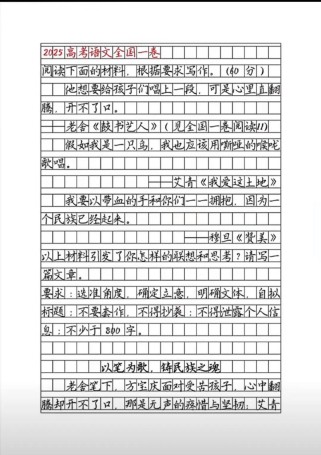 2025高考语文全国一卷
阅读下面的材料，根据要求写作。（60分）
他想要给孩子们唱上一段，可是心里直翻
腾，开不了口。
——老舍《鼓书艺人》（见全国一卷阅读II）
假如我是一只鸟，我也应该用嘶哑的喉咙
歌唱。
——艾青《我爱这土地》
我要以带血的手和你们一一拥抱，因为一
个民族已经起来。
——穆旦《赞美》
以上材料引发了你怎样的联想和思考？请写一
篇文章。
要求：选准角度，确定立意，明确文体，自拟
标题；不要套作，不得抄袭；不得泄露个人信
息；不少于800字。
以笔为歌，铸民族之魂
老舍笔下，方宝庆面对受苦孩子，心中翻
腾却开不了口，那是无声的疼惜与坚韧；艾青